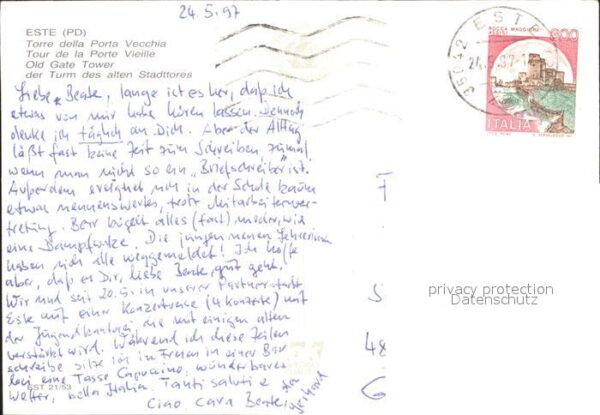 24.5.97
ESTE (PD)
Torre della Porta Vecchia
Tour de la Porte Vieille
Old Gate Tower
der Turm des alten Stadttores
Liebe Beate, lange ist es her, daß ich
etwas von mir habe hören lassen. Dennoch
denke ich täglich an Dich. Aber der Alltag
läßt fast keine Zeit zum Schreiben, zumal
wenn man nicht so ein "Briefschreiber" ist.
Außerdem ereignet sich in der Schule kaum
etwas nennenswertes, trotz Mitarbeiterver-
tretung. Beer bügelt alles (fast) nieder, wie
eine Dampfwalze. Die jungen neuen Lehrerinnen
haben sich alle weggemeldet! Ich hoffe
aber, daß es Dir, liebe Beate, gut geht.
Wir sind seit 20.5. in unserer Partnerstadt
Este auf einer Konzertreise (4 Konzerte) mit
der Jugendkantorei, die mit einigen alten
verstärkt wird. Während ich diese Zeilen
schreibe sitze ich im Freien in einer Bar
bei eine Tasse Capuccino, wunderbares
Wetter, bella Italia. Tanti saluti e
Ciao cara Beate
EST 21/53
F
S
48
G
35042 ESTE
24.5.97
ROCCA MAGGIORE
ASSISI
800
ITALIA
privacy protection
Datenschutz